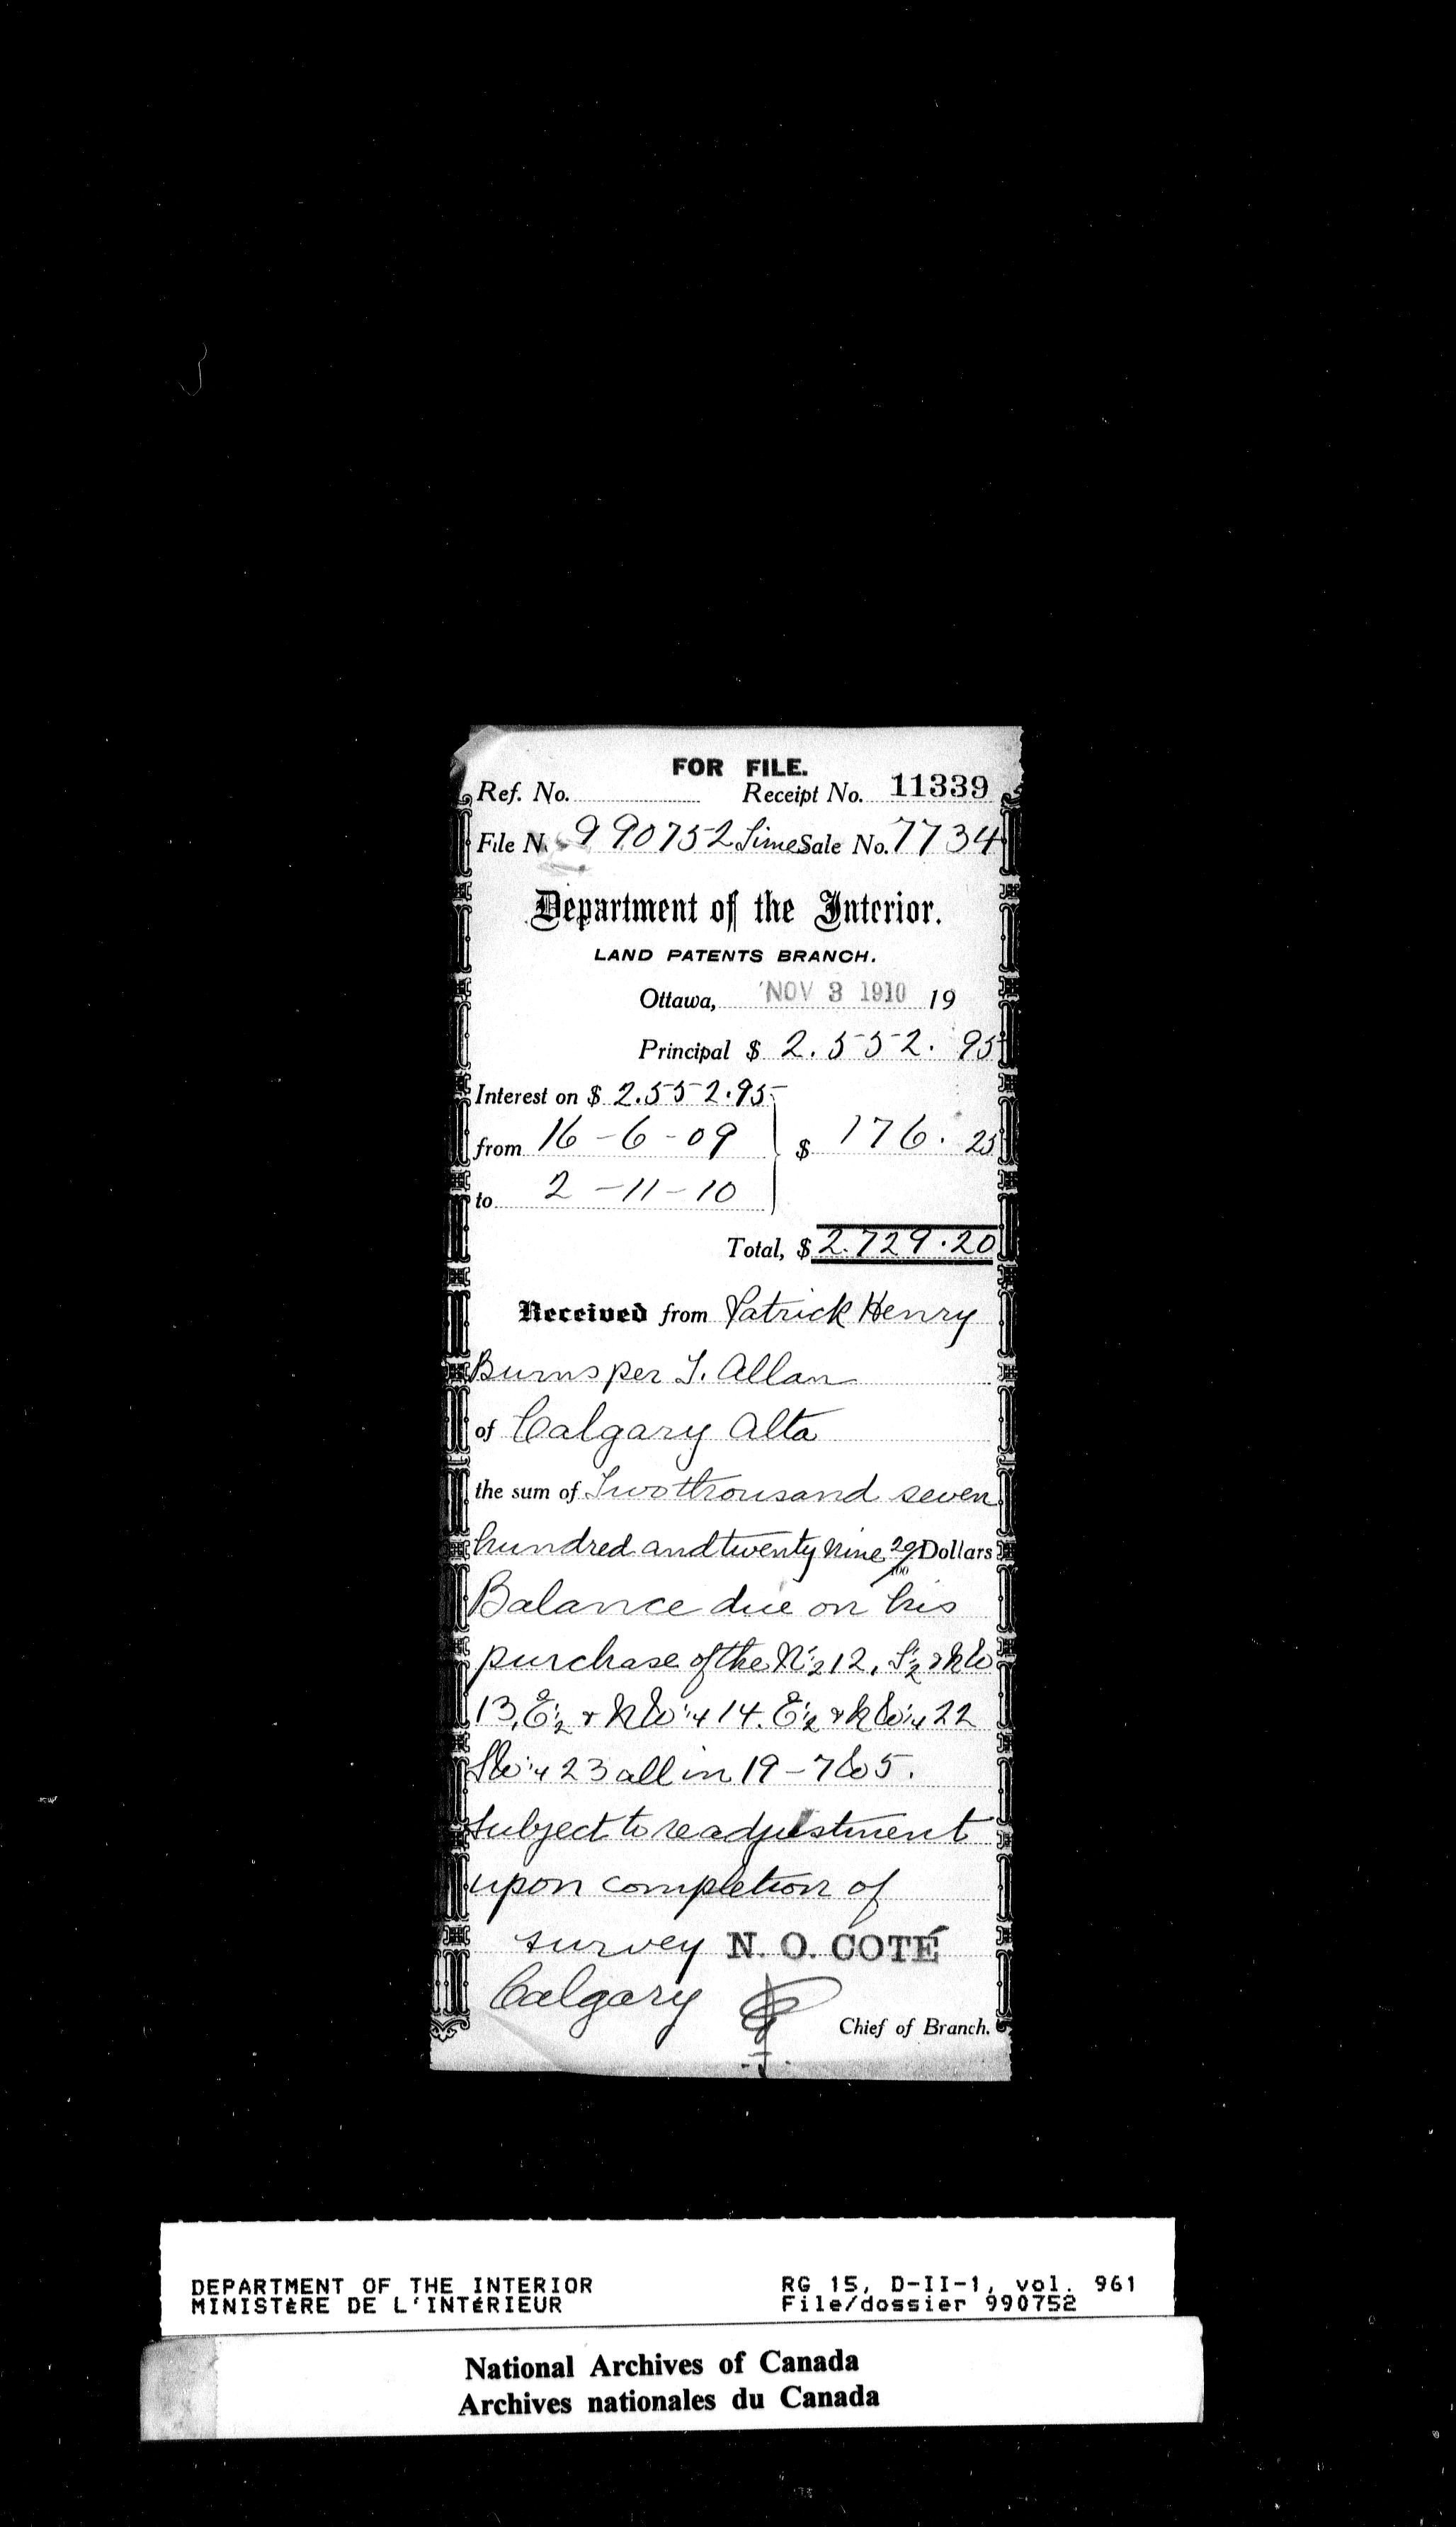 FOR FILE.
Ref. No. Receipt No. 11339
File No. 990752 Time Sale No. 7734
Department of the Interior.
LAND PATENTS BRANCH.
Ottawa, NOV 3 1910 19
Principal $ 2.552.95
Interest on $ 2.552.95
from 16-6-09 $ 176.25
to 2-11-10
Total, $ 2.729.20
Received from Patrick Henry
Burns per T. Allan
of Calgary Alta
the sum of Two thousand seven
hundred and twenty nine 20/100 Dollars
Balance due on his
purchase of the N 1/2 12, S 1/2 & NW
13, E 1/2 & NW 1/4 14. E 1/2 & NW 1/4 22
SW 1/4 23 all in 19-7 W 5.
Subject to readjustment
upon completion of
survey N. O. COTÉ
Calgary
Chief of Branch.
DEPARTMENT OF THE INTERIOR RG 15, D-II-1, vol. 961
MINISTÈRE DE L'INTÉRIEUR File/dossier 990752
National Archives of Canada
Archives nationales du Canada